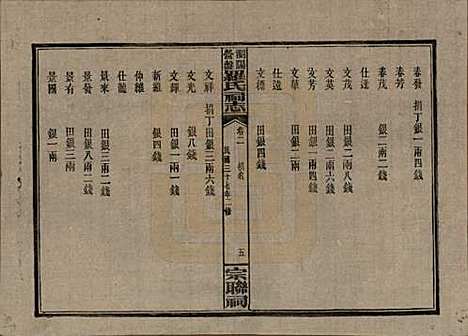 春發 捐丁銀一兩四錢
春芳
春茂 銀二兩二錢
仕達
文茂 田銀二兩八錢
文英 田銀二兩六錢
文芳 銀一兩四錢
文華 田銀三兩
仕達
文標 田銀四錢
羅氏祠志
卷二 捐名
民國三十七年二修
五
宗聯祠
文祥 捐丁銀三兩六錢
文光 銀八錢
文鐸 田銀一兩一錢
新雛 銀四錢
仲雛
仕龍
景來 田銀三兩二錢
景發 田銀八兩二錢
景有 田銀二錢
景國 銀一兩